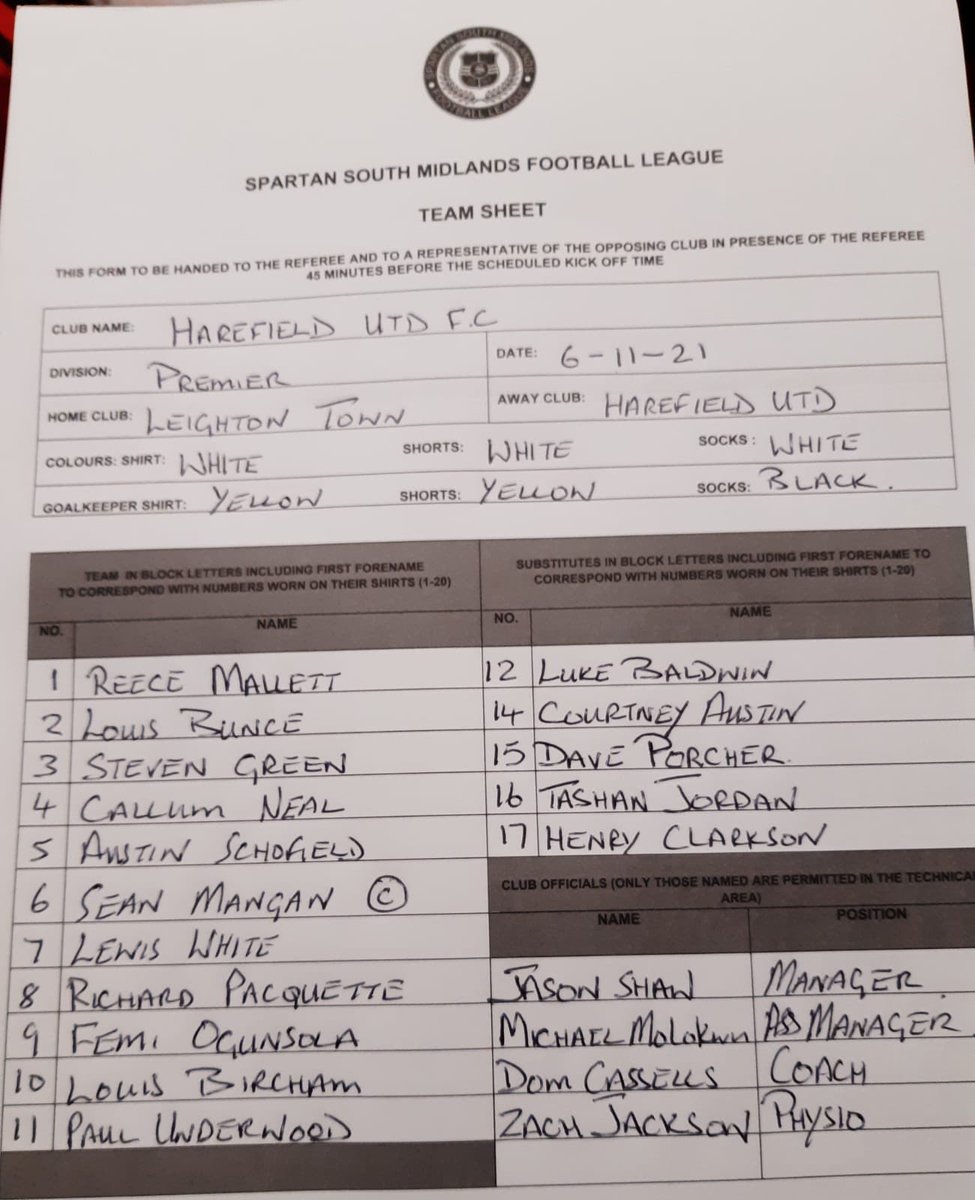 SPARTAN SOUTH MIDLANDS
FOOTBALL LEAGUE
SPARTAN SOUTH MIDLANDS FOOTBALL LEAGUE
TEAM SHEET
THIS FORM TO BE HANDED TO THE REFEREE AND TO A REPRESENTATIVE OF THE OPPOSING CLUB IN PRESENCE OF THE REFEREE
45 MINUTES BEFORE THE SCHEDULED KICK OFF TIME
CLUB NAME: HAREFIELD UTD F.C
DIVISION: PREMIER DATE: 6-11-21
HOME CLUB: LEIGHTON TOWN AWAY CLUB: HAREFIELD UTD
COLOURS: SHIRT: WHITE SHORTS: WHITE SOCKS: WHITE
GOALKEEPER SHIRT: YELLOW SHORTS: YELLOW SOCKS: BLACK.
TEAM IN BLOCK LETTERS INCLUDING FIRST FORENAME
TO CORRESPOND WITH NUMBERS WORN ON THEIR SHIRTS (1-20)
NO. NAME
1 REECE MALLETT
2 LOUIS BUNCE
3 STEVEN GREEN
4 CALLUM NEAL
5 AUSTIN SCHOFIELD
6 SEAN MANGAN (C)
7 LEWIS WHITE
8 RICHARD PACQUETTE
9 FEMI OGUNSOLA
10 LOUIS BIRCHAM
11 PAUL UNDERWOOD
SUBSTITUTES IN BLOCK LETTERS INCLUDING FIRST FORENAME TO
CORRESPOND WITH NUMBERS WORN ON THEIR SHIRTS (1-20)
NO. NAME
12 LUKE BALDWIN
14 COURTNEY AUSTIN
15 DAVE PORCHER.
16 TASHAN JORDAN
17 HENRY CLARKSON
CLUB OFFICIALS (ONLY THOSE NAMED ARE PERMITTED IN THE TECHNICA
AREA)
NAME POSITION
JASON SHAW MANAGER.
MICHAEL MOLOKWU ASS MANAGER
DOM CASSELLS COACH
ZACH JACKSON PHYSIO